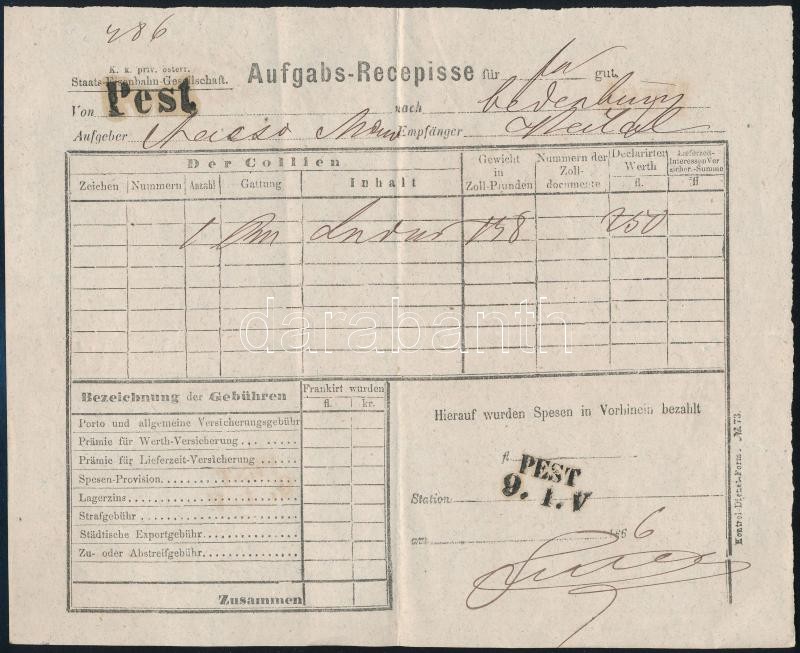 286
K. k. priv. österr.
Staats-Eisenbahn-Gesellschaft.
Aufgabs-Recepisse für gut.
Von Pest nach
Aufgeber Empfänger
Der Collien
Zeichen Nummern Anzahl Gattung Inhalt Gewicht in Zoll-Pfunden Nummern der Zoll-documente Declarirter Werth fl. Lieferzeit-Interessen Ver sicher.-Summe fl.
1 158 250
darabanth
Bezeichnung der Gebühren Frankirt wurden
fl. kr.
Porto und allgemeine Versicherungsgebühr
Prämie für Werth-Versicherung
Prämie für Lieferzeit-Versicherung
Spesen-Provision
Lagerzins
Strafgebühr
Städtische Exportgebühr
Zu- oder Abstreifgebühr
Zusammen
Hierauf wurden Spesen in Vorhinein bezahlt
fl.
PEST
9. 1. V
Station
am 186 6
Kontrol-Dienst-Form. № 73.